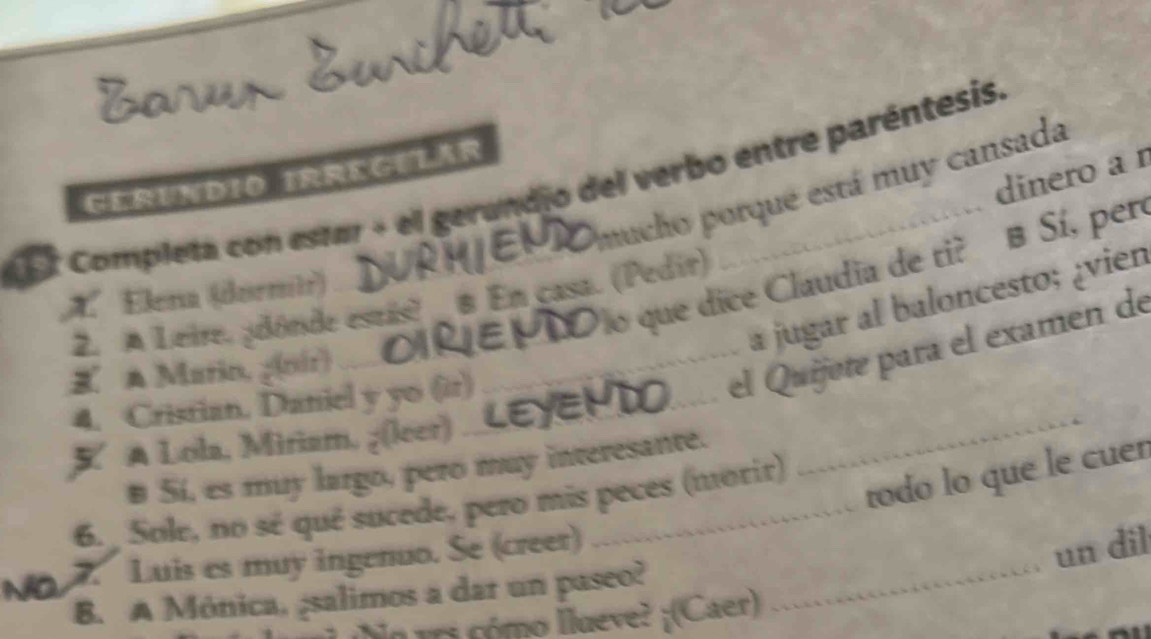 GERUNDIO IRREGULAR
Completa con estar + el gerundio del verbo entre paréntesis.
1. Elena (dormir) DURMIENDO mucho porque está muy cansada
2. A Leire, ¿dónde estás? B En casa. (Pedir) dinero a
3. A Mario, ¿(oír) OIRIENDO lo que dice Claudia de ti? B Sí, pero
4. Cristian, Daniel y yo (ir) a jugar al baloncesto; ¿vien
5. A Lola, Miriam, ¿(leer) LEYENDO el Quijote para el examen de
B Sí, es muy largo, pero muy interesante.
6. Sole, no sé qué sucede, pero mis peces (morir)
NO 7. Luis es muy ingenuo. Se (creer) todo lo que le cuen
8. A Mónica, ¿salimos a dar un paseo?
¿No ves cómo llueve? ¡(Caer) un dil